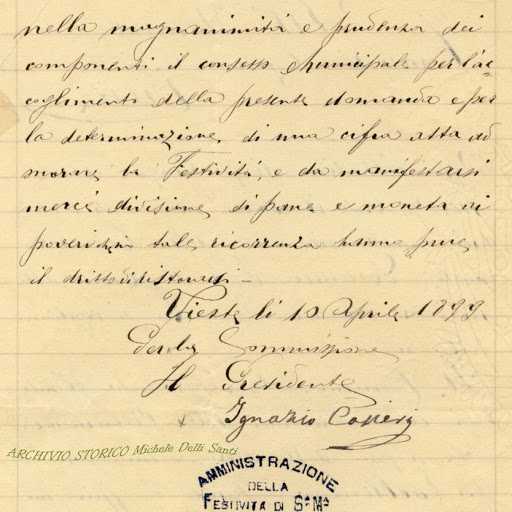 nella magnanimità e prudenza dei
componenti il consesso Municipale per l'ac=
coglimento della presente domanda e per
la determinazione, di una cifra atta ad
onorare la Festività e da manifestarsi
mercé divisione di pane e moneta ai
poveri che in tale ricorrenza hanno pure
il dritto di ristorarsi.—
Vieste li 10 Aprile 1899
Per la Commissione
Il Presidente
Ignazio
ARCHIVIO STORICO Michele Delli Santi
AMMINISTRAZIONE
DELLA
FESTIVITÀ DI Sª Mª